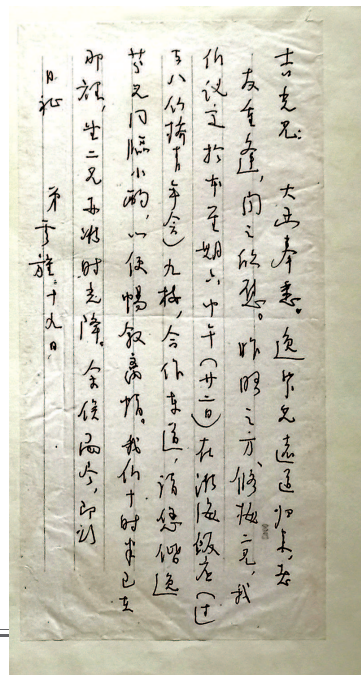 吉光兄: 大函奉悉。逸芩兄远道归来,老
友重逢,闻之欣慰。昨晤之方、修梅二兄,我
们议定于本星期六中午(廿二日)在湖海饭店(过
去八仙桥青年会)九楼,合作东道,请您偕逸
芩兄同临小酌,以便畅叙离情。我们十时半已在
那恭候二兄,盼时光降。余俟面尽,即颂
日祉 弟 十九日